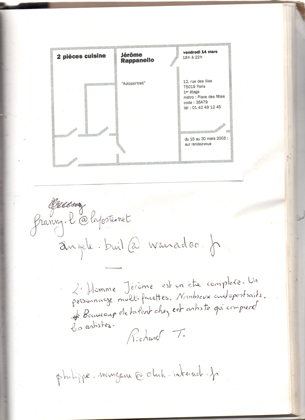 2 pièces cuisine
Jérôme
Rappanello
"Autoportrait"
vendredi 14 mars
18H à 22H
12, rue des lilas
75019 Paris
1er étage
métro : Place des fêtes
code : 35479
tél : 01 42 49 12 45
du 15 au 30 mars 2003 :
sur rendez-vous
franny.l@laposte.net
angele.buil@wanadoo.fr
L'Homme Jérôme est un être complexe. Un
personnage multi facettes. Nombreux autoportraits.
Beaucoup de talent chez cet artiste qui comprend
les artistes.
Richard T.
@club-internet.fr